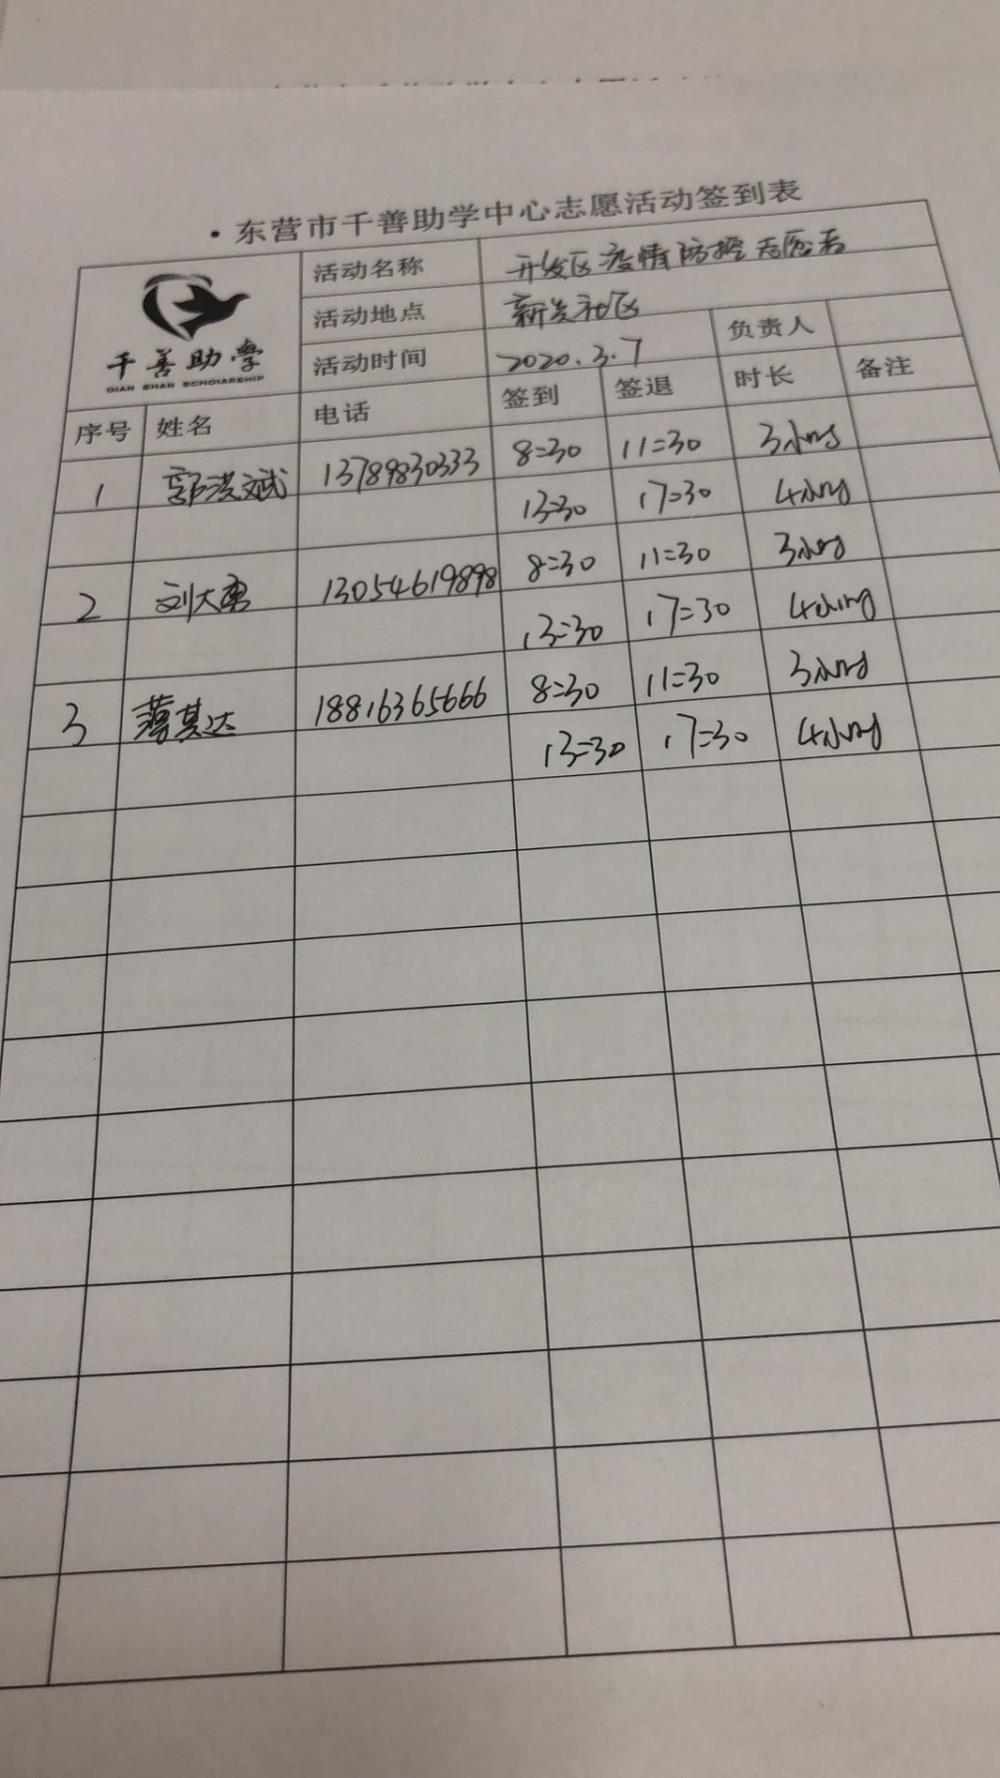 ·东营市千善助学中心志愿活动签到表
千善助学
QIAN SHAN SCHOIARSHIP
活动名称 开发区疫情防控志愿者
活动地点 新发社区
活动时间 2020.3.7 负责人
序号 姓名 电话 签到 签退 时长 备注
1 郭洪斌 13789830333 8=30 11=30 3小时
13=30 17=30 4小时
2 刘大勇 13054619898 8=30 11=30 3小时
13=30 17=30 4小时
3 薄其达 18816365666 8=30 11=30 3小时
13=30 17=30 4小时